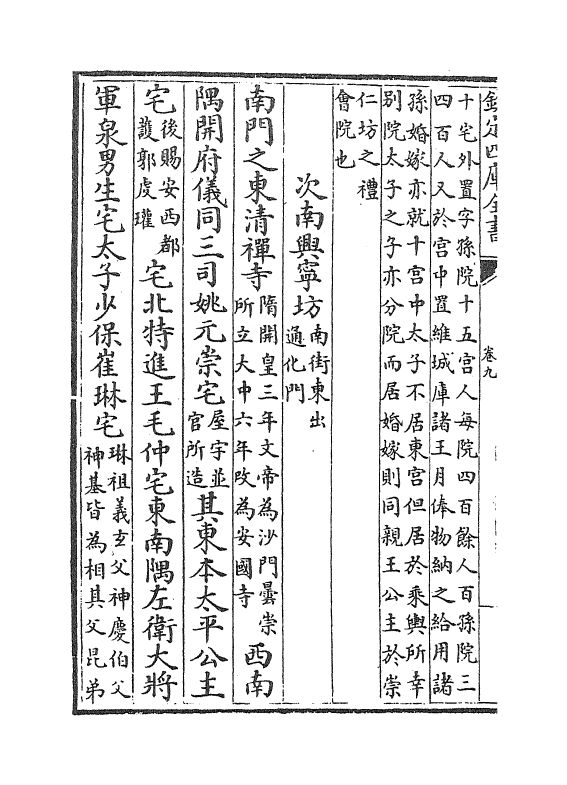 欽定四庫全書
卷九
十宅外置字孫院十五宮人每院四百餘人百孫院三
四百人又於宮中置維城庫諸王月俸物納之給用諸
孫婚嫁亦就十宮中太子不居東宮但居於乘輿所幸
別院太子之子亦分院而居婚嫁則同親王公主於崇
仁坊之禮
會院也
次南興寧坊南街東出通化門
南門之東清禪寺隋開皇三年文帝為沙門曇崇所立大中六年改為安國寺西南
隅開府儀同三司姚元崇宅屋宇並官所造其東本太平公主
宅後賜安西都護郭虔瓘宅北特進王毛仲宅東南隅左衛大將
軍泉男生宅太子少保崔琳宅琳祖義玄父神慶伯父神基皆為相其父昆弟